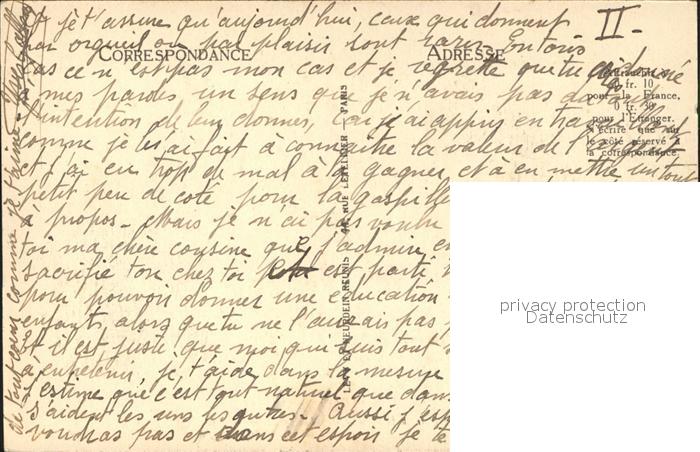 II -
je t'assure qu'aujourd'hui, ceux qui donnent
par orgueil ou par plaisir sont rares. En tous
CORRESPONDANCE
ADRESSE
cas ce n'est pas mon cas et je regrette que tu aies donné
à mes paroles un sens que je n'avais pas
l'intention de leur donner, car j'ai appris en
comme je l'ai fait à connaître la valeur de l'
et j'ai eu trop de mal à la gagner et à en mettre un tout
petit peu de coté pour la gaspiller
à propos - Mais je n'ai pas voulu
toi ma chère cousine que j'admire
sacrifié ton chez toi
pour pouvoir donner une éducation
enfants, alors que tu ne l'aurais pas
et il est juste que moi qui suis tout
à entretenir, je t'aide dans la mesure
J'estime que c'est tout naturel que dans
s'aident les uns les autres - Aussi j'esp
voudras pas et dans cet espoir je te
fr. 10
pour la France,
0 fr. 30
pour l'Etranger.
N'écrire que sur
le côté réservé à
la correspondance.
LEVY ET NEURDEIN REUNIS 44, RUE LETELLIER PARIS
privacy protection
Datenschutz